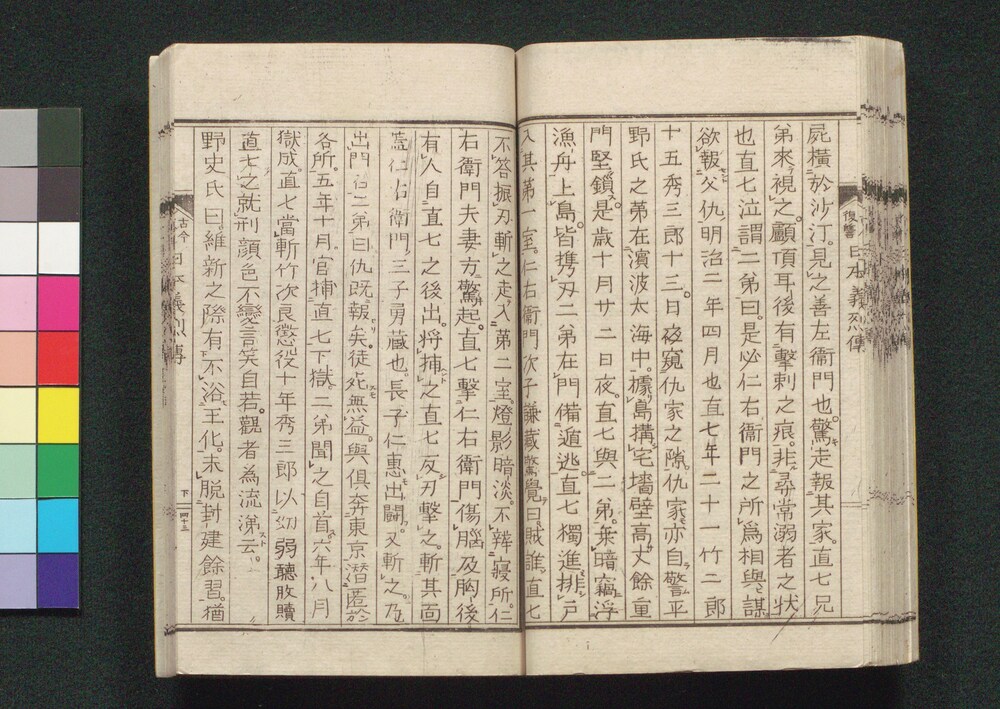 屍橫於沙汀見之善左衞門也驚走報其家直七兄
弟來視之顧頂耳後有擊刺之痕非尋常溺者之狀
也直七泣謂二弟曰是必仁右衞門之所爲相與謀
欲報父仇明治二年四月也直七年二十一竹二郎
十五秀三郎十三日夜窺仇家之隙仇家亦自警平
野氏之第在濱波太海中據島搆宅墻壁高丈餘重
門堅鎖是歲十月廿二日夜直七與二弟乘暗竊浮
漁舟上島皆携刃二弟在門備遁逃直七獨進排戶
入其第一室仁右衞門次子謙藏驚覺曰賊誰直七
復讐 日本義烈傳
不答振刃斬之走入第二室燈影暗淡不辨寢所仁
右衞門夫妻方驚起直七擊仁右衞門傷腦及胸後
有人自直七之後出將捕之直七反刃擊之斬其面
蓋仁右衞門三子勇藏也長子仁惠出鬪又斬之乃
出門 二弟曰仇既報矣徒死無益與俱奔東京潛匿於
各所五年十月官捕直七下獄二弟聞之自首六年八月
獄成直七當斬竹次良懲役十年秀三郎以幼弱聽收贖
直七之就刑顏色不變言笑自若觀者為流涕云
野史氏曰維新之際有不浴王化未脫封建餘習猶
古今 日本義烈傳
下 四十三